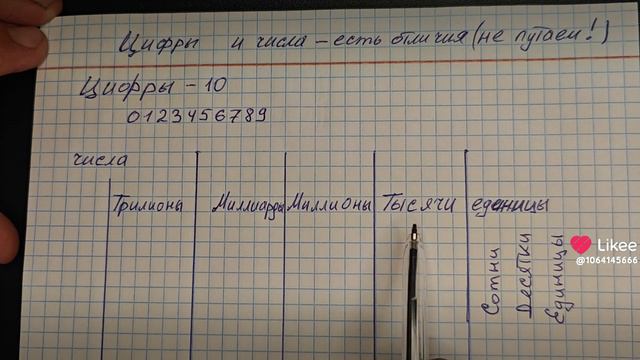 Цифры и числа – есть отличия (не путаем!)
Цифры – 10
0123456789
числа
Трилионы Миллиарды Миллионы Тысячи еденицы
Сотни
Десятки
Единицы
Likee
@1064145666